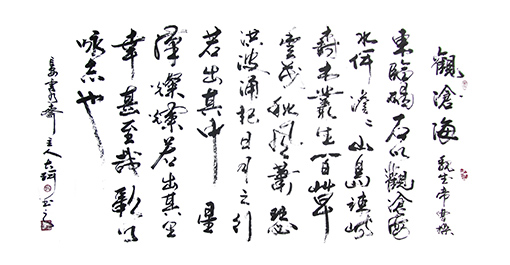 觀滄海 魏武帝曹操
東臨碣石以觀滄海
水何澹〻山島竦峙
樹木叢生百草
豐茂秋風蕭瑟
洪波涌起日月之行
若出其中 星
漢燦爛若出其里
幸甚至哉歌以
詠志也
齋主人